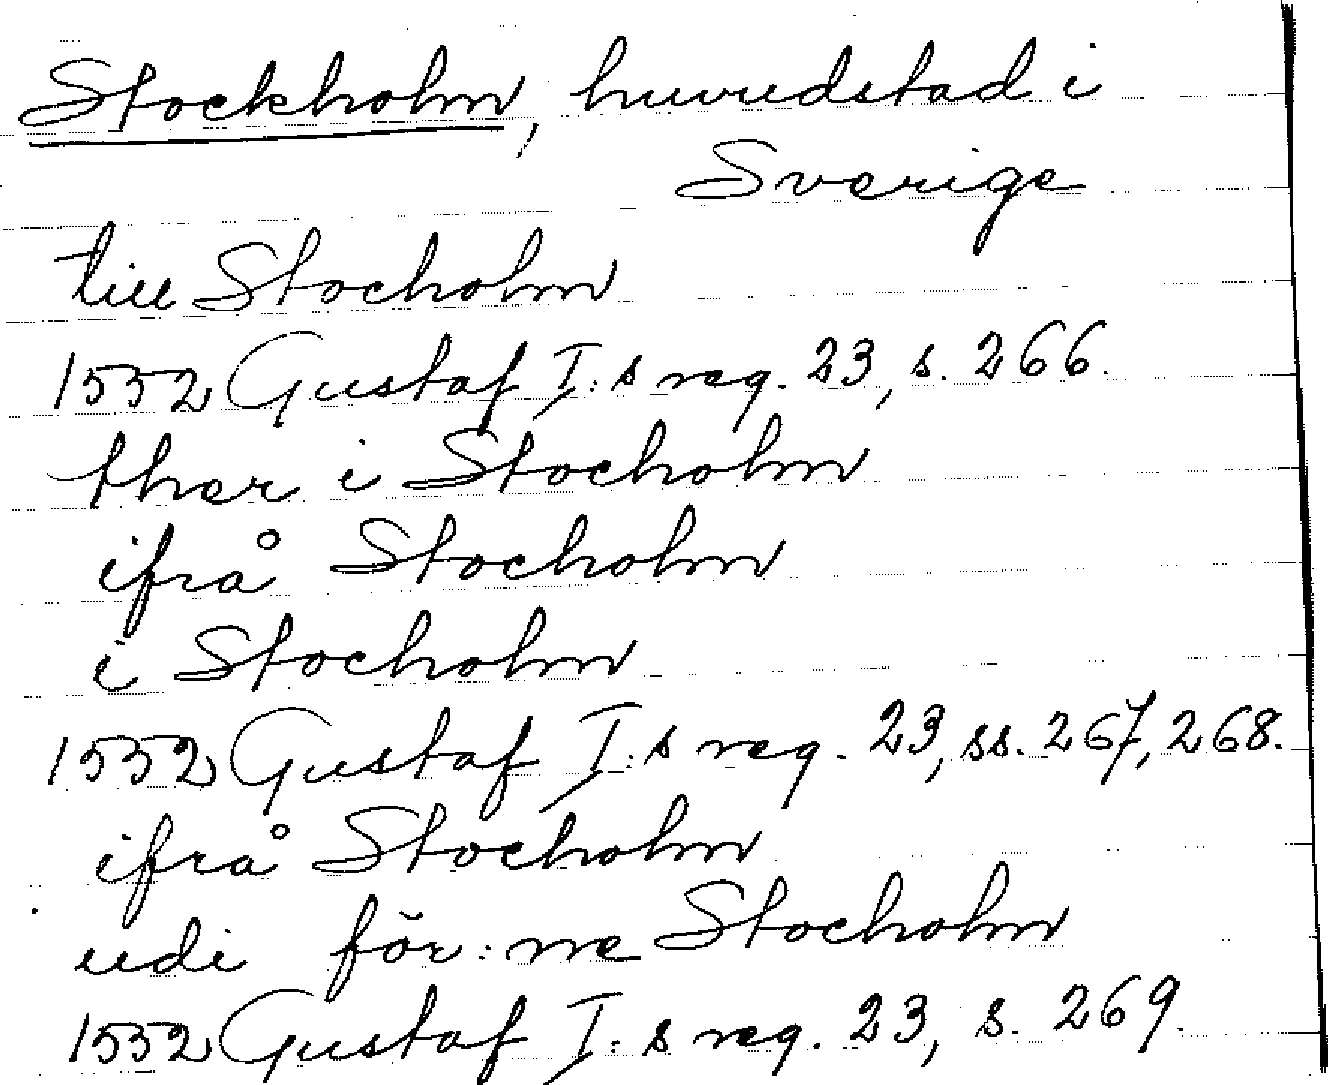 Stockholm, huvudstad i
Sverige
till Stocholm
1552 Gustaf I:s reg. 23, s. 266.
ther i Stocholm
ifrå Stocholm
i Stocholm
1552 Gustaf I:s reg. 23, ss. 267, 268.
ifrå Stocholm
udi för:ne Stocholm
1552 Gustaf I:s reg. 23, s. 269.